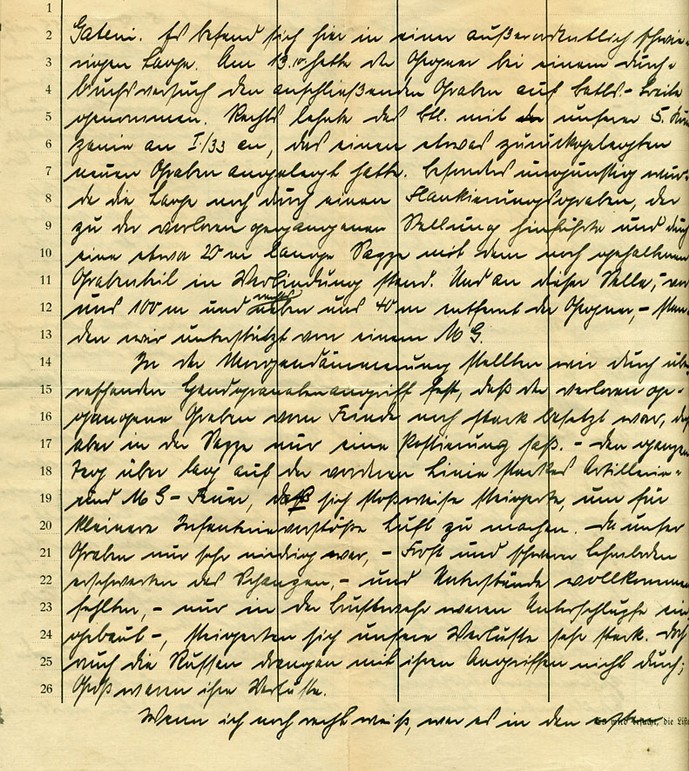 1
2 Gateni. Es befand sich hier in einer außerordentlich schwie-
3 rigen Lage. Am 13.10. hatte der Gegner bei einem Durch-
4 bruchsversuch den anschließenden Graben auf Batls.-Breite
5 genommen. Rechts lehnte das Btl. mit unserer 5. Kom
6 panie an I./33 an, das einen etwas zurückgelegten
7 neuen Graben angelegt hatte. Besonders ungünstig wur-
8 de die Lage noch durch einen Flankierungsgraben, der
9 zu der verloren gegangenen Stellung hinführte und durch
10 eine etwa 20 m lange Sappe mit dem noch gehaltenen
11 Grabenteil in Verbindung stand. Und an dieser Stelle, – vor
12 uns 100 m und rechts neben uns 40 m entfernt der Gegner, – stan
13 den wir unterstützt von einem M G.
14 In der Morgendämmerung stellten wir durch über
15 raschenden Handgranatenangriff fest, daß der verloren ge-
16 gangene Graben vom Feinde noch stark besetzt war, daß
17 aber in der Sappe nur eine Postierung saß. – Den ganzen
18 Tag über lag auf der vorderen Linie starkes Artillerie-
19 und M G – Feuer, daß sich stoßweise steigerte, um für
20 kleinere Infanterievorstöße Luft zu machen. Da unser
21 Graben nur sehr niedrig war, – Frost und schwerer Lehmboden
22 erschwerten das Schanzen, – und Unterstände vollkommen
23 fehlten, – nur in der Brustwehr waren Unterschlupfe ein
24 gebaut –, steigerten sich unsere Verluste sehr stark. Doch
25 auch die Russen drangen mit ihren Angriffen nicht durch;
26 Groß waren ihre Verluste.
Wenn ich noch recht weiß, war es in den ersten die Liste